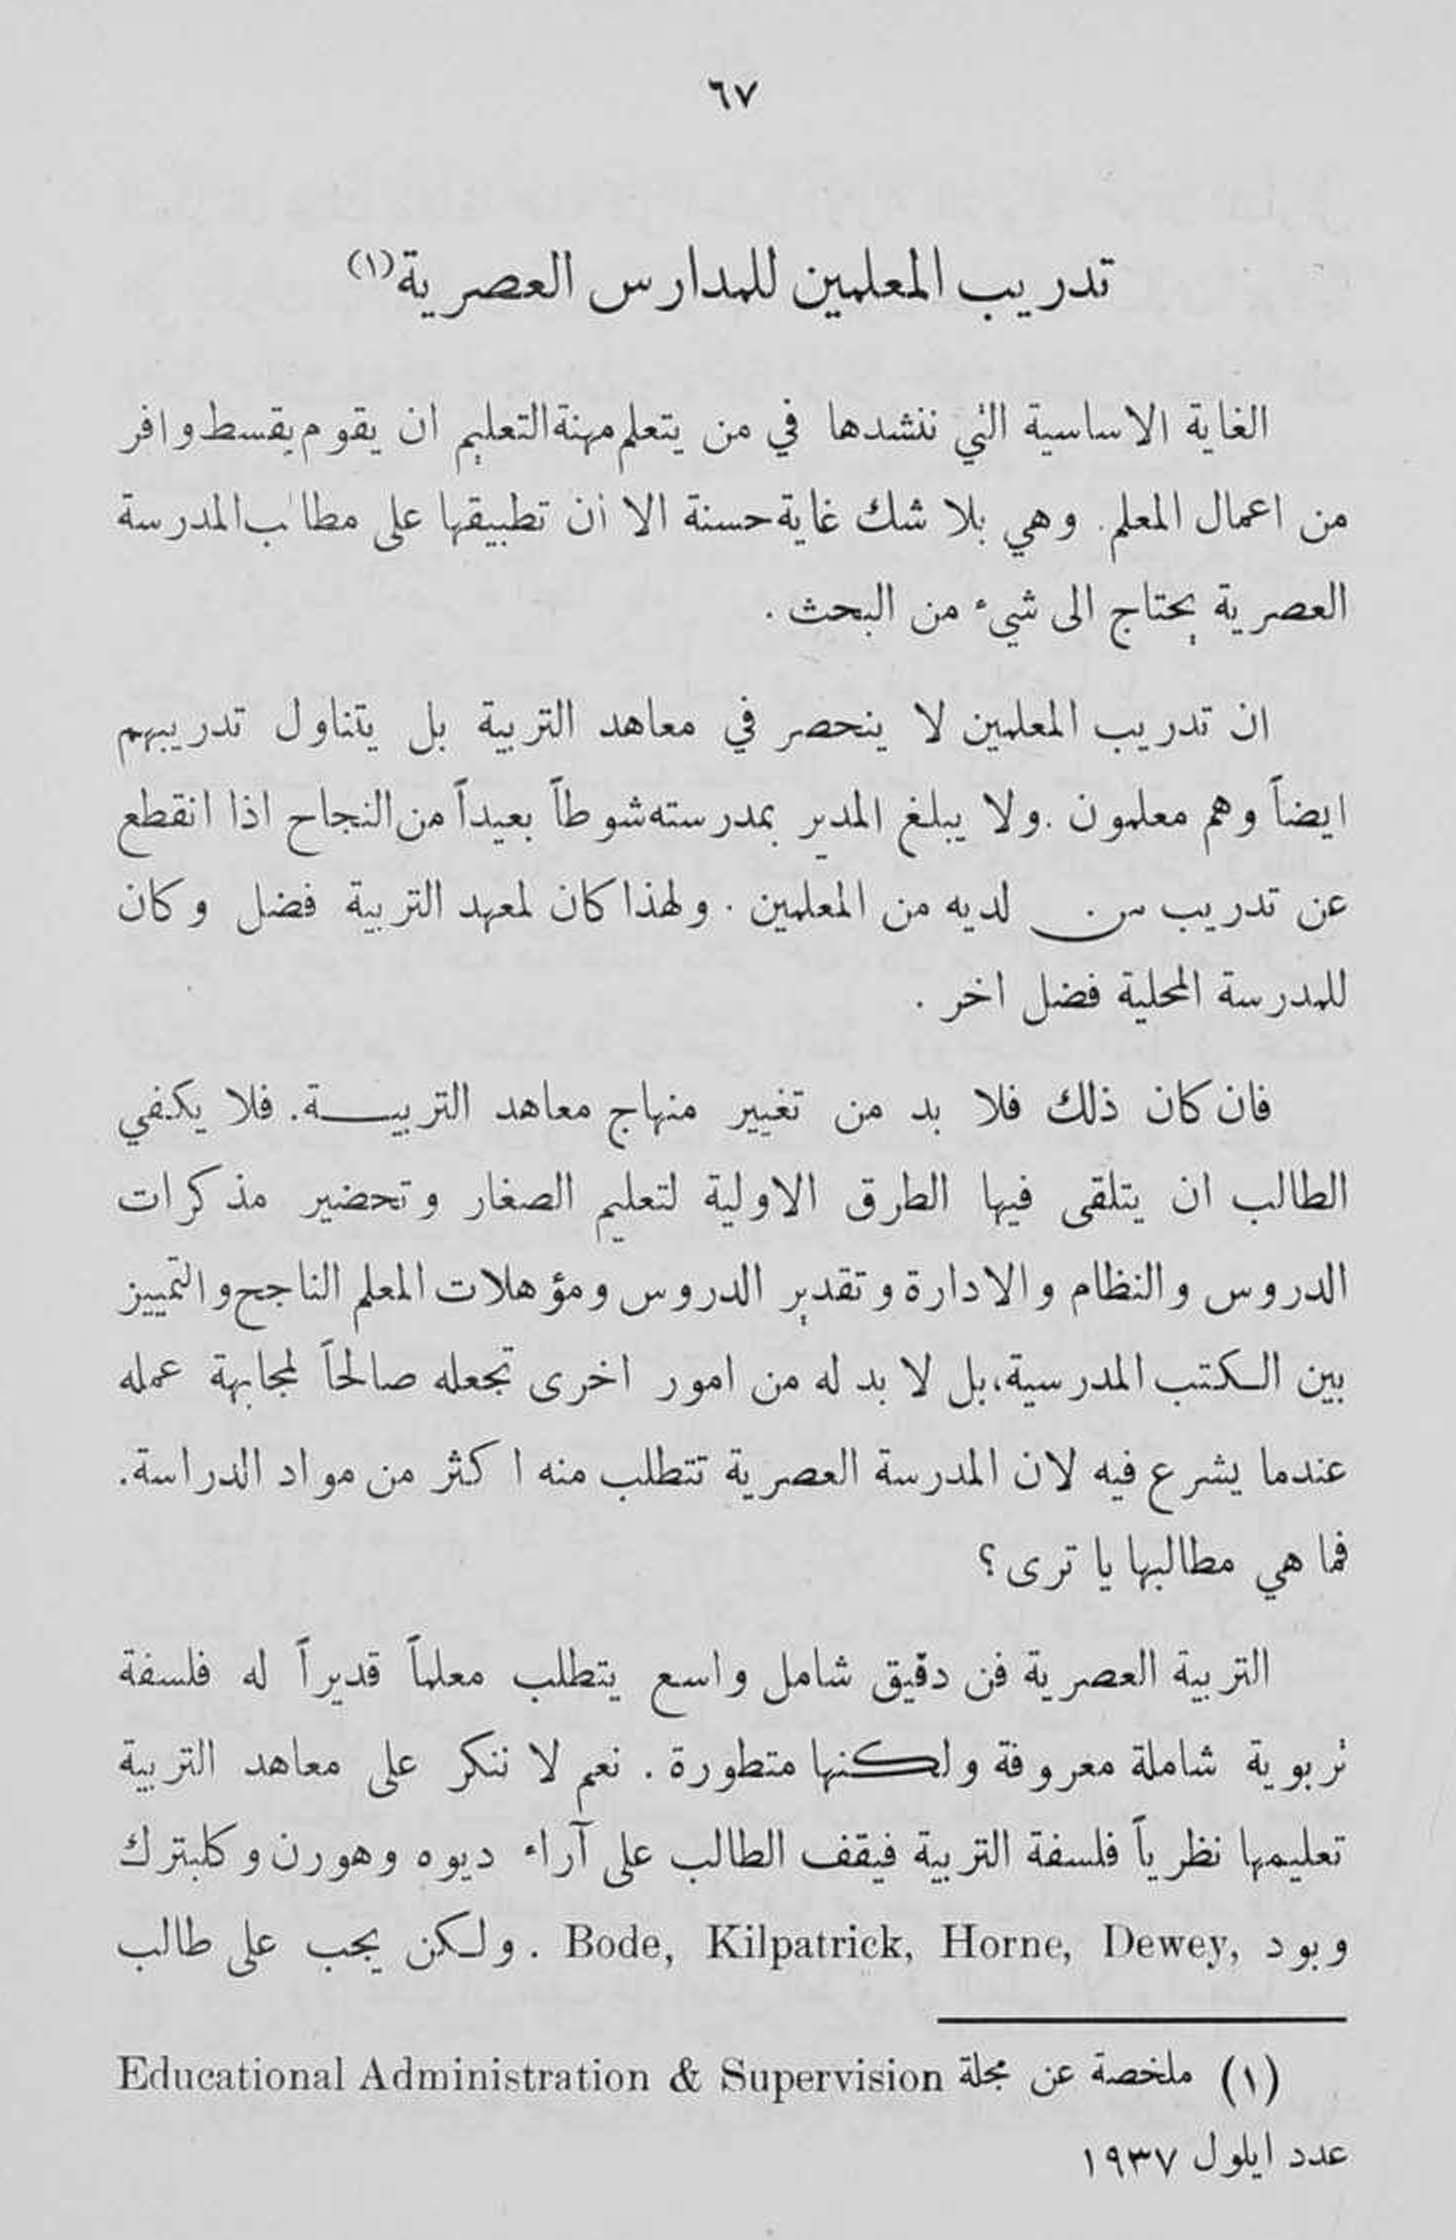 ٦٧
تدريب المعلمين للمدارس العصرية (١)
الغاية الاساسية التي ننشدها في من يتعلم مهنة التعليم ان يقوم بقسط وافر
من اعمال المعلم. وهي بلا شك غاية حسنة الا ان تطبيقها على مطالب المدرسة
العصرية يحتاج الى شيء من البحث .
ان تدريب المعلمين لا ينحصر في معاهد التربية بل يتناول تدريبهم
ايضاً وهم معلمون . ولا يبلغ المدير بمدرسته شوطاً بعيداً من النجاح اذا انقطع
عن تدريب من لديه من المعلمين . ولهذا كان لمعهد التربية فضل وكان
للمدرسة المحلية فضل اخر .
فان كان ذلك فلا بد من تغيير منهاج معاهد التربيـــة. فلا يكفي
الطالب ان يتلقى فيها الطرق الاولية لتعليم الصغار وتحضير مذكرات
الدروس والنظام والادارة وتقدير الدروس ومؤهلات المعلم الناجح والتمييز
بين الكتب المدرسية، بل لا بد له من امور اخرى تجعله صالحاً لمجابهة عمله
عندما يشرع فيه لان المدرسة العصرية تتطلب منه اكثر من مواد الدراسة.
فما هي مطالبها يا ترى ؟
التربية العصرية فن دقيق شامل واسع يتطلب معلماً قديراً له فلسفة
تربوية شاملة معروفة ولكنها متطورة . نعم لا ننكر على معاهد التربية
تعليمها نظرياً فلسفة التربية فيقف الطالب على آراء ديوه وهورن وكلبترك
وبود Bode, Kilpatrick, Horne, Dewey, . ولكن يجب على طالب
(١) ملخصة عن مجلة Educational Administration & Supervision
عدد ايلول ١٩٣٧